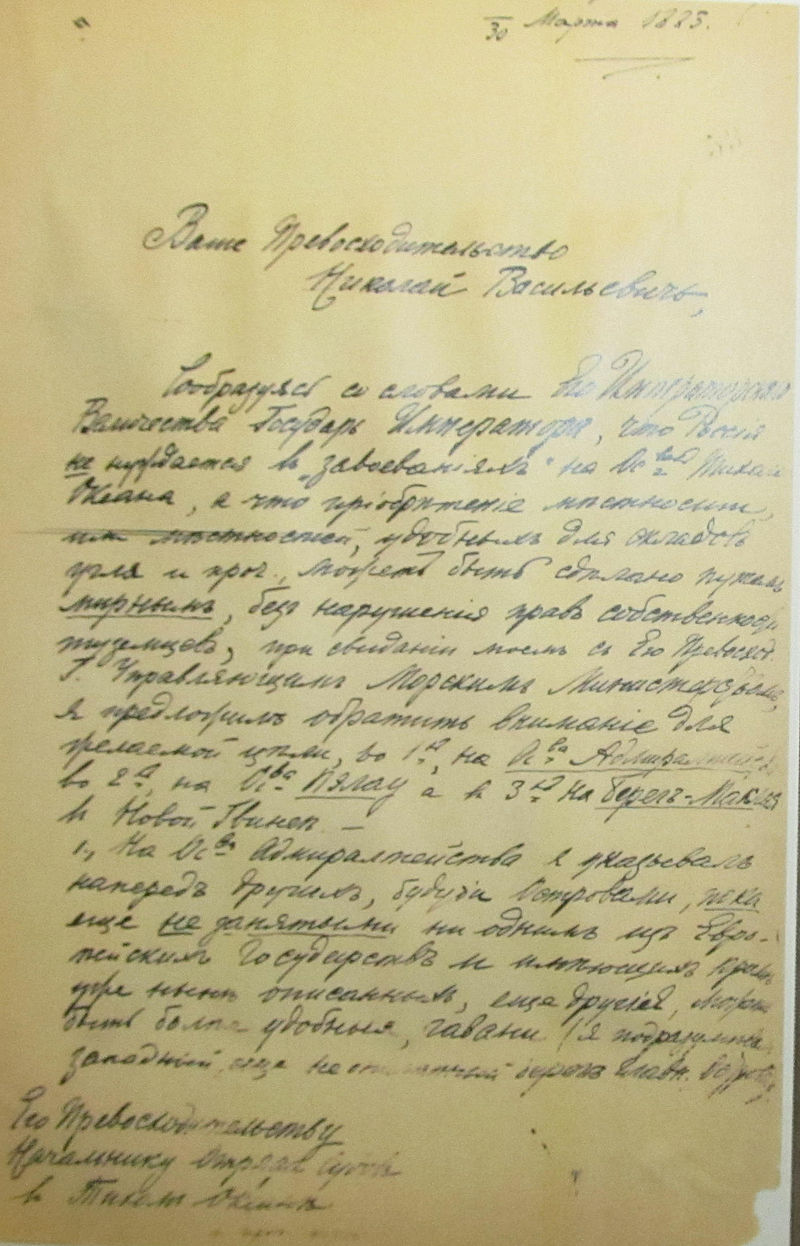 30 Марта 1883.
Ваше Превосходительство
Николай Васильевичъ,
Сообразуясь со словами Его Императорскаго
Величества Государь Императора, что Россія
не нуждается въ „завоеваніяхъ“ на Ос-вахъ Тихаго
Океана, а что пріобрѣтеніе мѣстности,
или мѣстностей, удобныхъ для складовъ
угля и проч., можетъ быть сдѣлано путемъ
мирнымъ, безъ нарушенія правъ собственности
туземцевъ, при свиданіи моемъ съ Его Превосход.
Г. Управляющимъ Морскимъ Министерствомъ,
я предложилъ обратить вниманіе для
желаемой цѣли, во 1хъ, на Ос-ва Адмиралтейства,
во 2хъ, на Ос-ва Пялау а въ 3хъ на берегъ-Маклая
въ Новой Гвинеѣ. —
1., На Ос-ва Адмиралтейства я указывалъ
напередъ другимъ, будучи Островами, пока
еще не занятыми ни однимъ изъ Евро-
пейскихъ Государствъ и имѣющимъ кромѣ
уже нынѣ описанныхъ, еще другія, можетъ
быть болѣе удобныя, гавани. (я подразумѣваю
западный, еще не описанный берегъ главн. Острова
Его Превосходительству
Начальнику Отряда Судовъ
въ Тихомъ Океанѣ